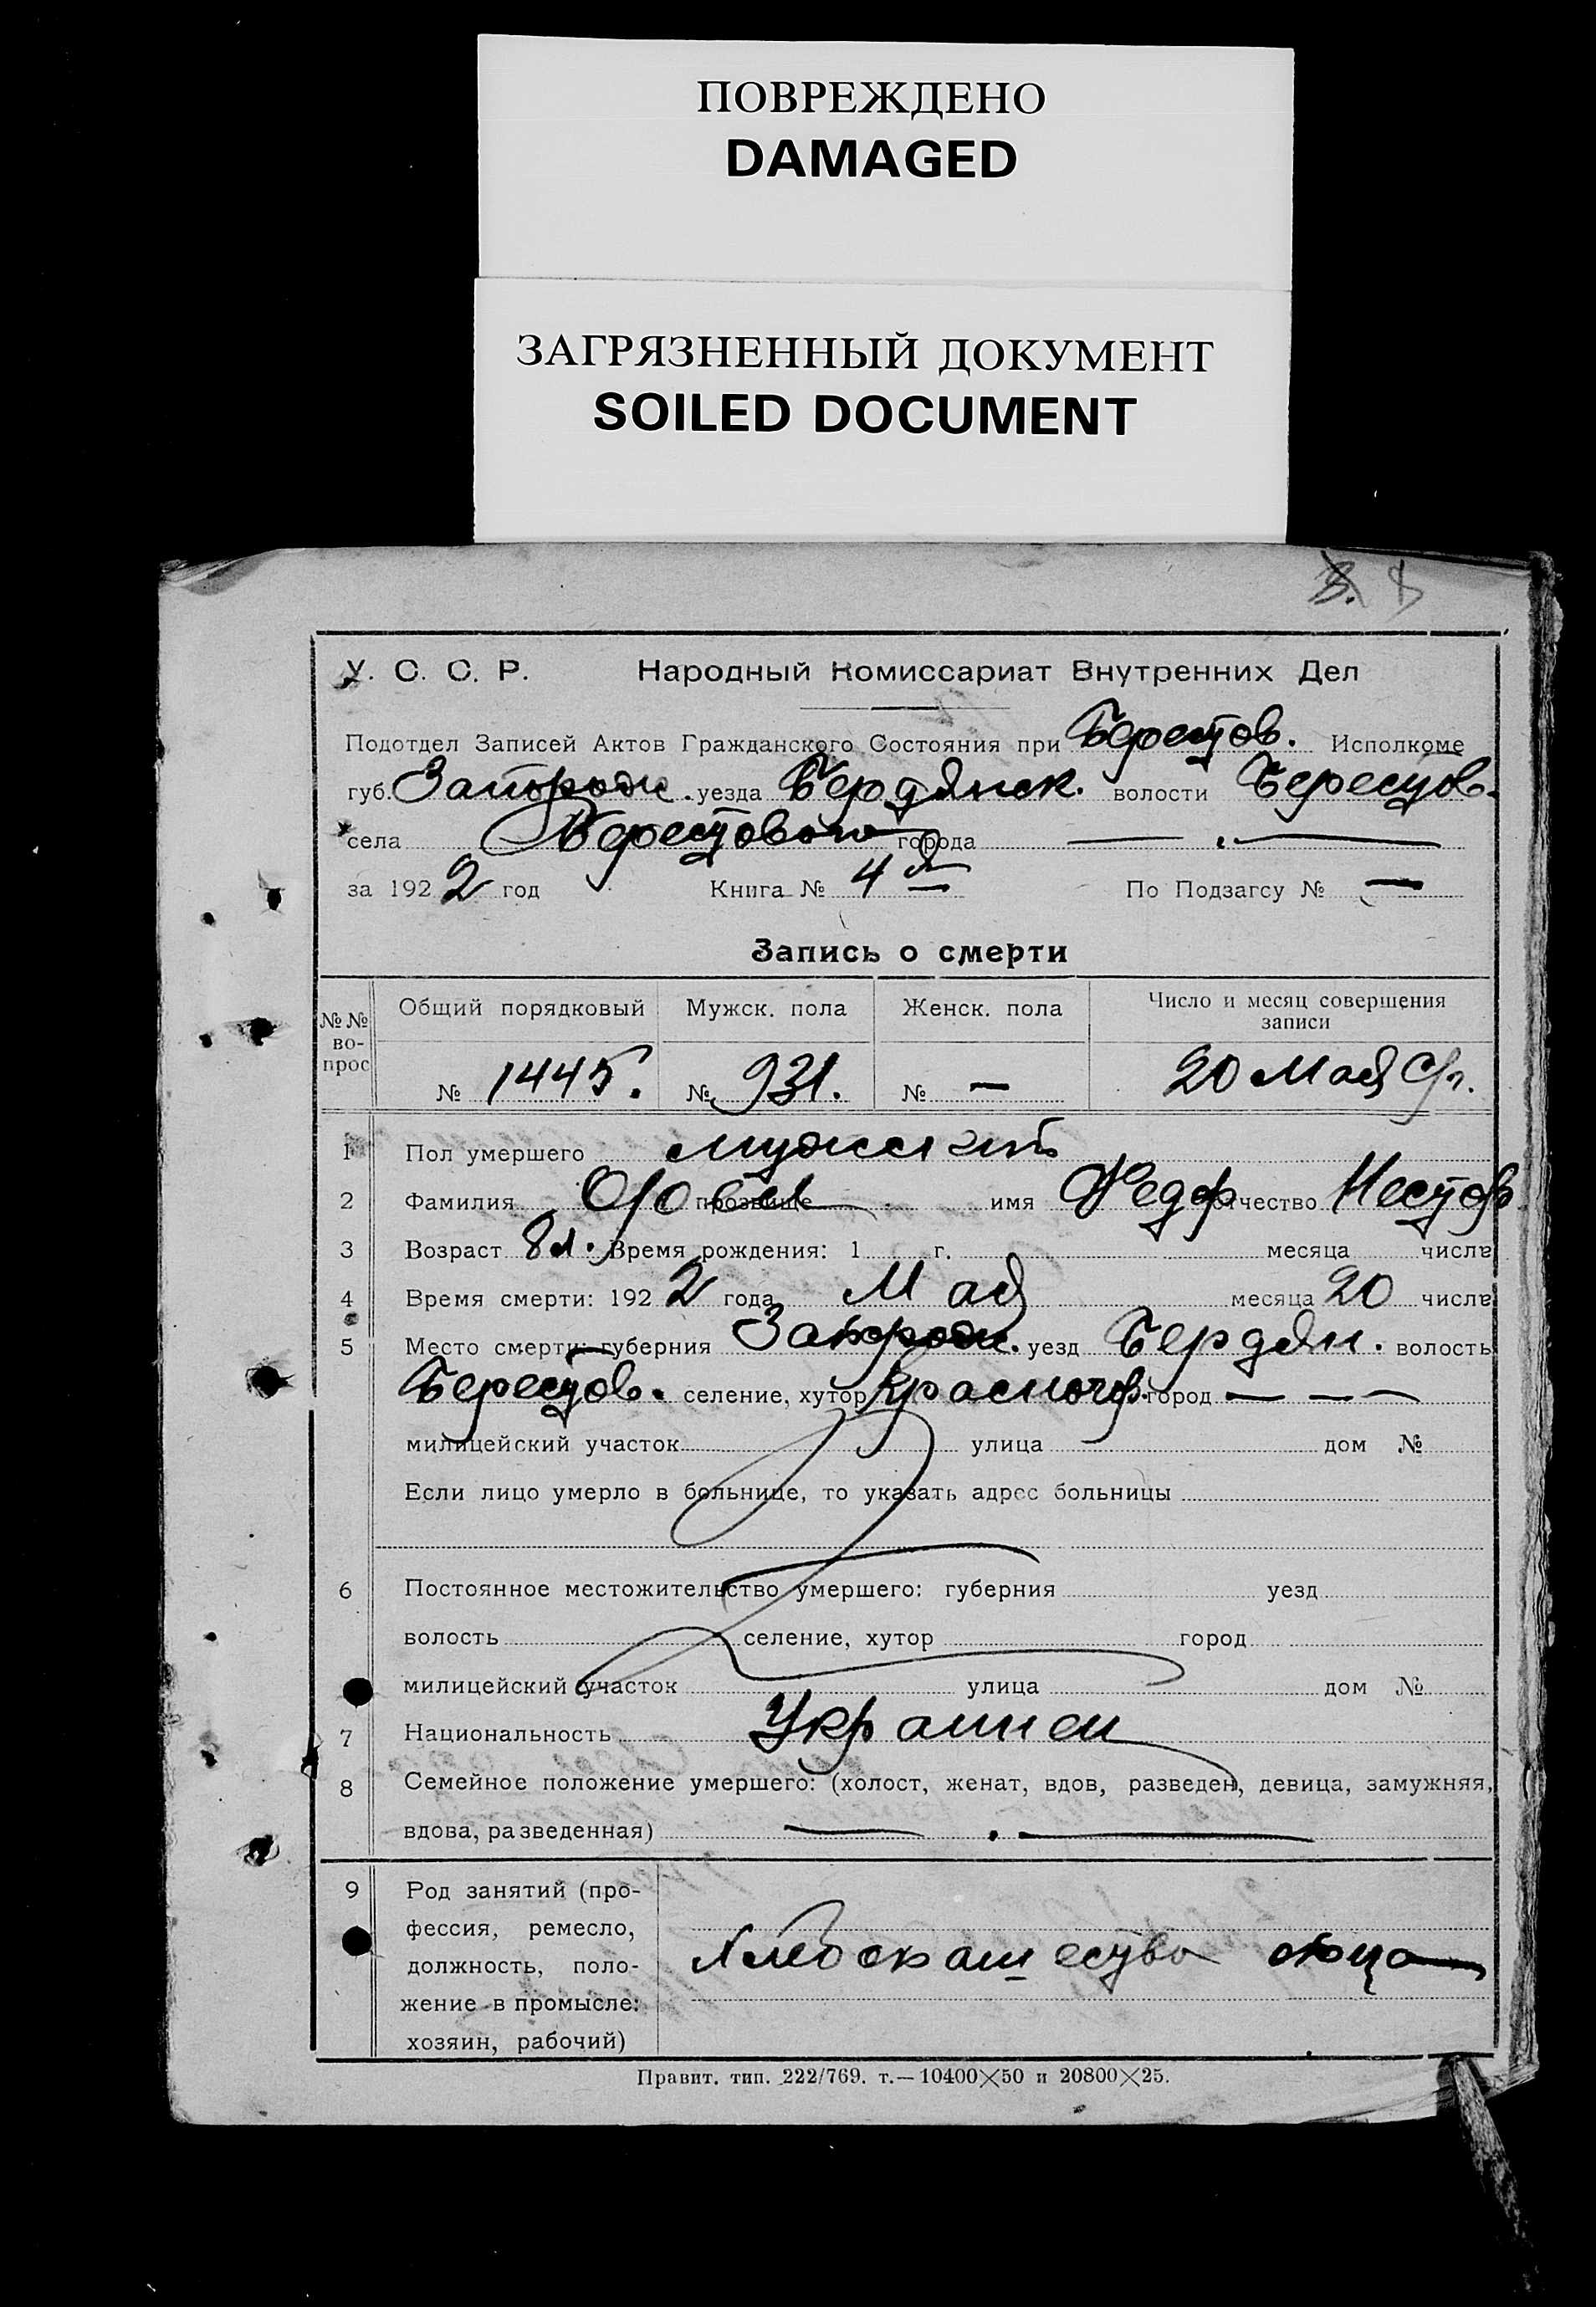 ПОВРЕЖДЕНО
DAMAGED
ЗАГРЯЗНЕННЫЙ ДОКУМЕНТ
SOILED DOCUMENT
У. С. С. Р. Народный Комиссариат Внутренних Дел
Подотдел Записей Актов Гражданского Состояния при Берестов. Исполкоме
губ. Запорож. уезда Бердянск. волости Берестов.
села Берестового города — . —
за 1922 год Книга № 4 По Подзагсу № —
Запись о смерти
№№ вопрос Общий порядковый Мужск. пола Женск. пола Число и месяц совершения записи
№ 1445. № 931. № — 20 Мая
1 Пол умершего мужской
2 Фамилия прозвище имя Федр отчество Нестор
3 Возраст 8 л. Время рождения: 1 г. месяца числа
4 Время смерти: 1922 года Мая месяца 20 числа
5 Место смерти: губерния Запорож. уезд Бердян. волость
Берестов. селение, хутор город — — —
милицейский участок улица дом №
Если лицо умерло в больнице, то указать адрес больницы
6 Постоянное местожительство умершего: губерния уезд
волость селение, хутор город
милицейский участок улица дом №
7 Национальность Украинец
8 Семейное положение умершего: (холост, женат, вдов, разведен, девица, замужняя,
вдова, разведенная) — . —
9 Род занятий (про-
фессия, ремесло,
должность, поло- отца
жение в промысле:
хозяин, рабочий)
Правит. тип. 222/769. т.—10400×50 и 20800×25.